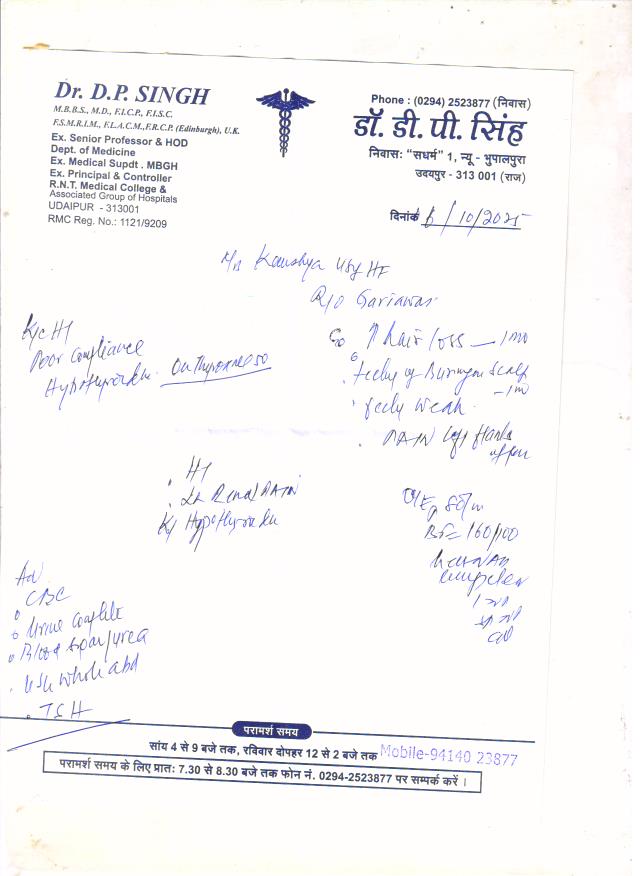 Dr. D.P. SINGH
M.B.B.S., M.D., F.I.C.P., F.I.S.C.
F.S.M.R.I.M., F.L.A.C.M.,F.R.C.P. (Edinburgh), U.K.
Ex. Senior Professor & HOD
Dept. of Medicine
Ex. Medical Supdt . MBGH
Ex. Principal & Controller
R.N.T. Medical College &
Associated Group of Hospitals
UDAIPUR - 313001
RMC Reg. No.: 1121/9209
Phone : (0294) 2523877 (निवास)
डॉ. डी. पी. सिंह
निवास: "सधर्म" 1, न्यू - भुपालपुरा
उदयपुर - 313 001 (राज)
दिनांक 6/10/2025
Kaushya
R/o Gariawas
K/c HT
Poor Compliance
Hypothyroidism. On Thyronorm 50
C/o ↑ hair loss — 1 mo
Feeling of Burning on Scalp
— 1m
feeling weak
PAIN left flanks
HT
Lt Renal PAIN
K/ Hypothyroidism
O/E
BP= 160/100
Adv
CBC
Urine Complete
Blood Sugar/urea
USG whole abd
TSH
परामर्श समय
सांय 4 से 9 बजे तक, रविवार दोपहर 12 से 2 बजे तक Mobile-94140 23877
परामर्श समय के लिए प्रातः 7.30 से 8.30 बजे तक फोन नं. 0294-2523877 पर सम्पर्क करें ।